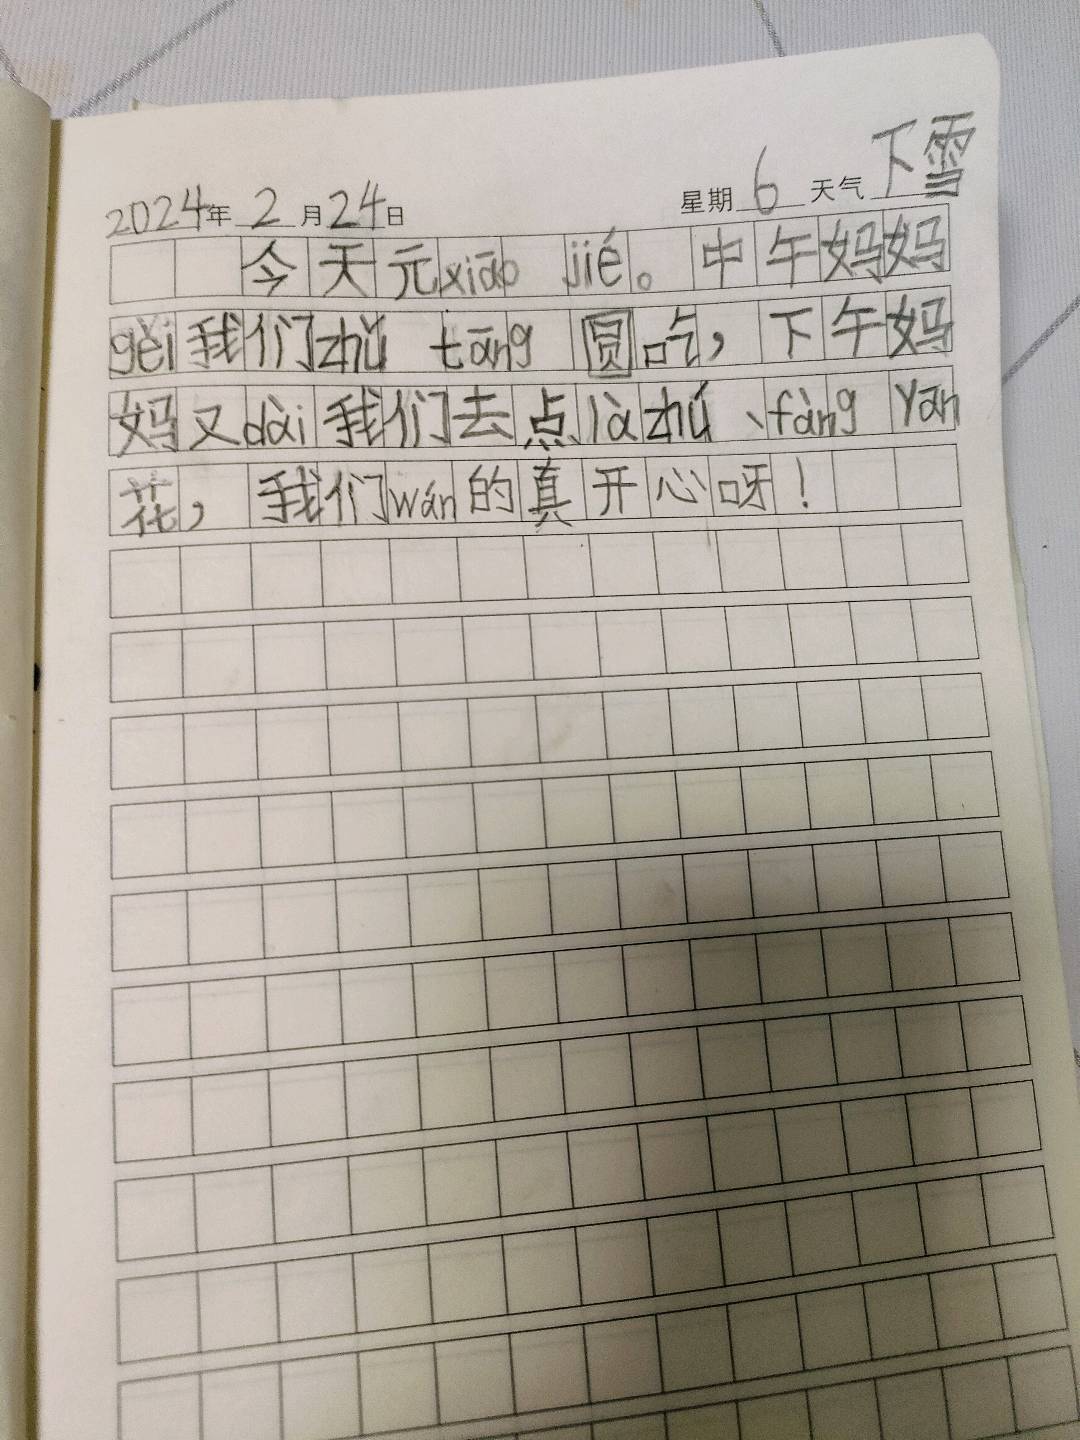 2024年 2 月 24 日 星期 6 天气 下雪
今天元xiāo jié。中午妈妈
gěi我们zhǔ tāng 圆吃，下午妈
妈又dài我们去点là zhú、fàng yān
花，我们wán的真开心呀！